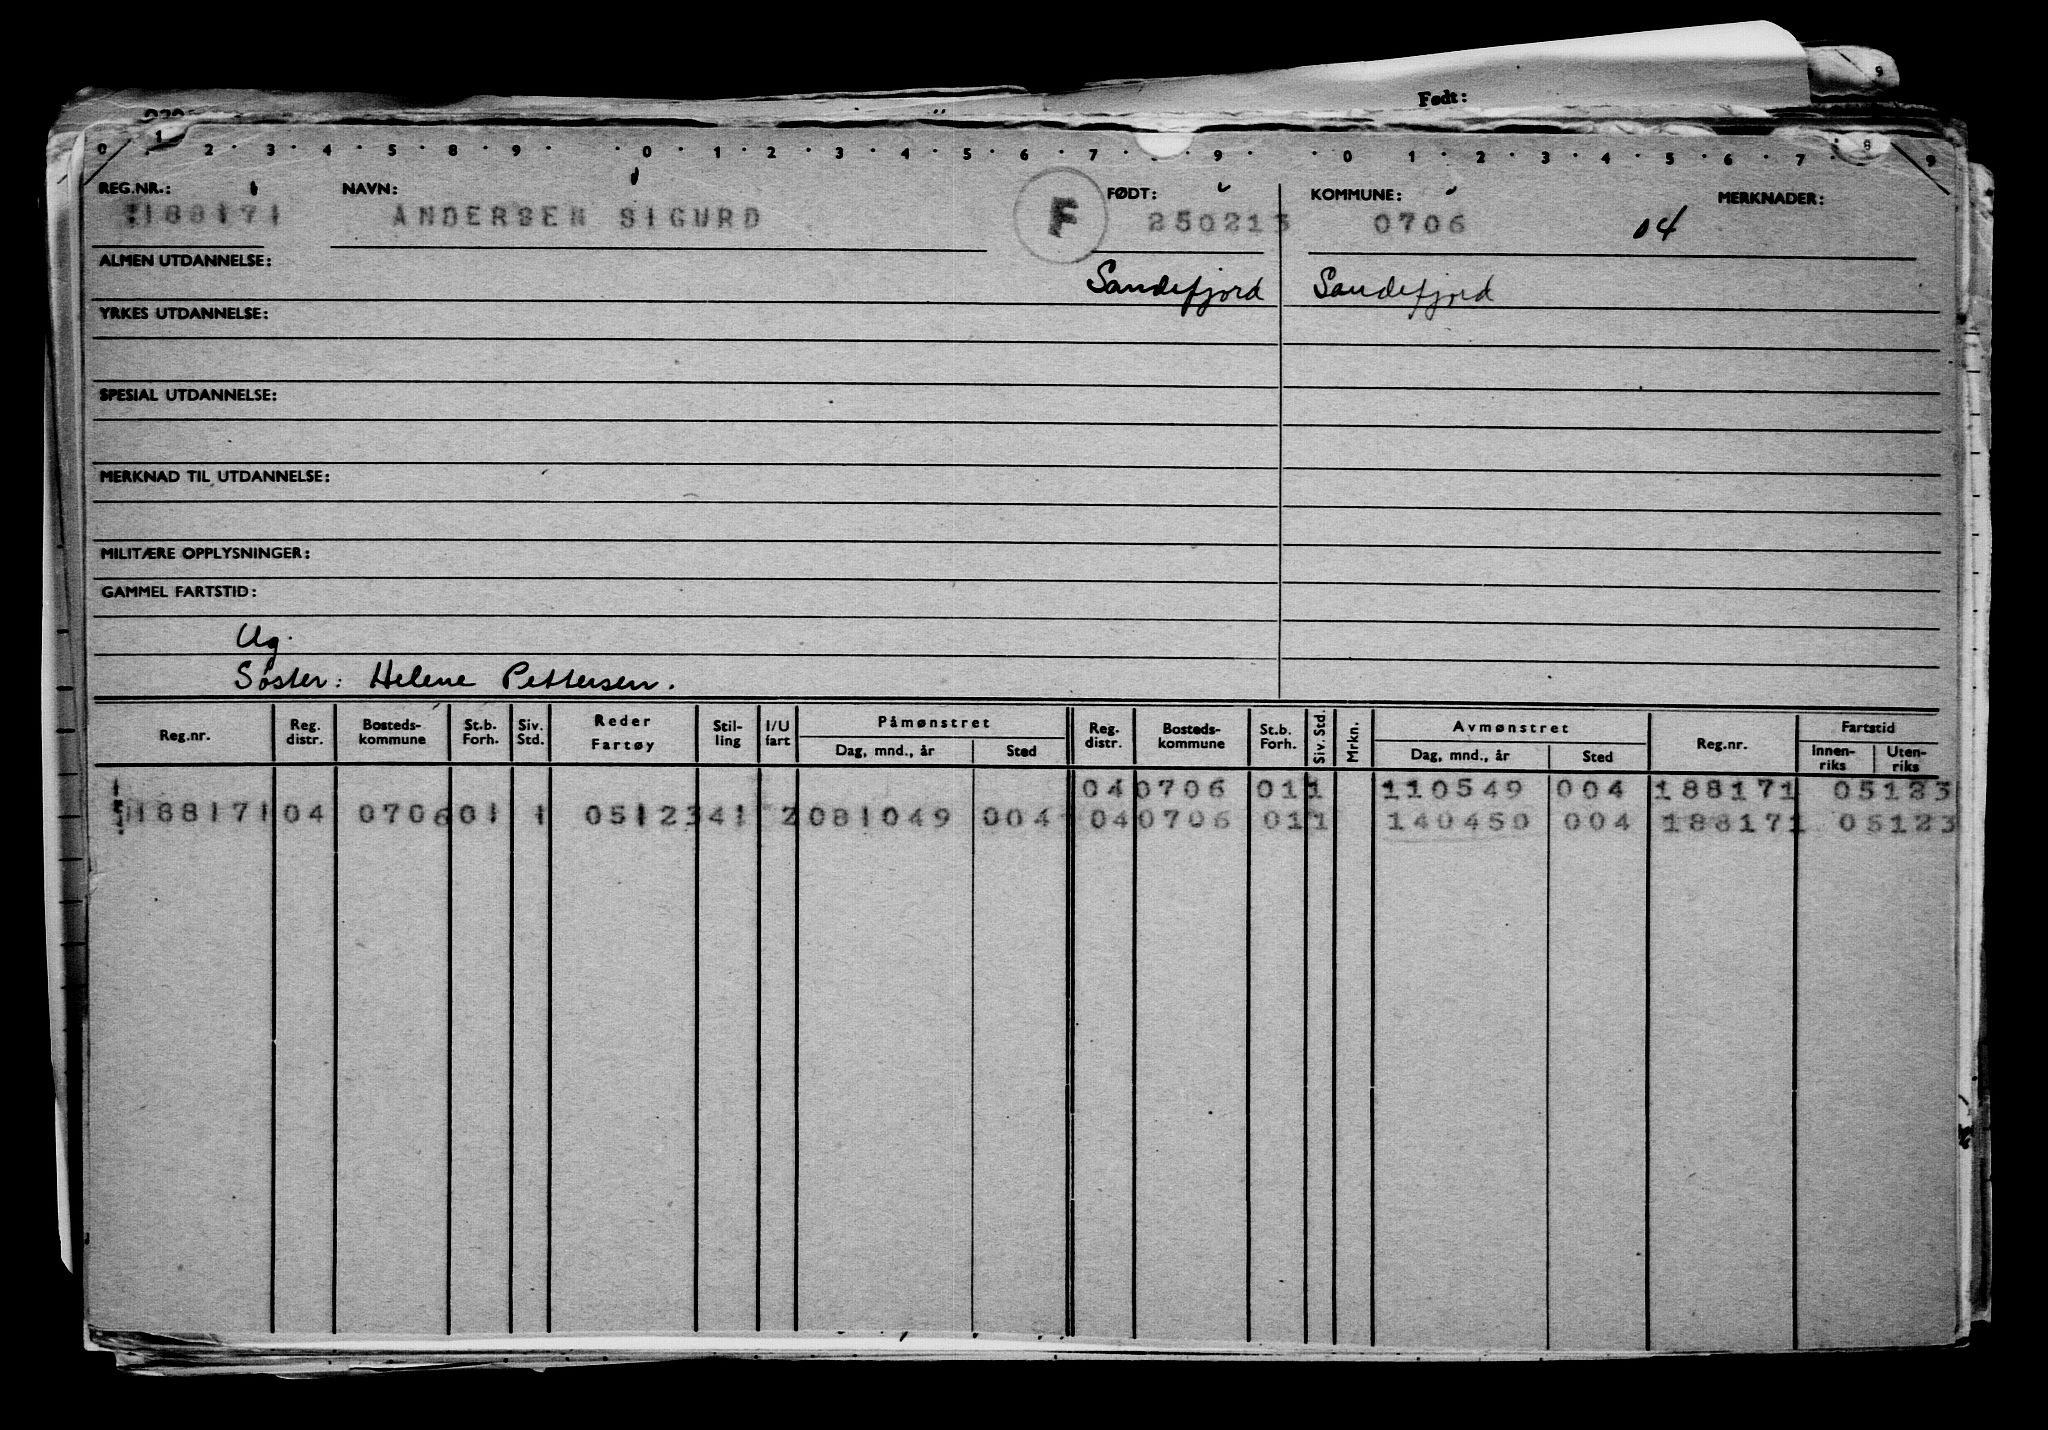 Født:
9
0 1 2 3 4 5 8 9 0 1 2 3 4 5 6 7 9 0 1 2 3 4 5 6 7 8 9
REG.NR.: NAVN: FØDT: KOMMUNE: MERKNADER:
188171 ANDERSEN SIGURD F 250213 0706 04
ALMEN UTDANNELSE: Sandefjord Sandefjord
YRKES UTDANNELSE:
SPESIAL UTDANNELSE:
MERKNAD TIL UTDANNELSE:
MILITÆRE OPPLYSNINGER:
GAMMEL FARTSTID:
Ug.
Søster: Helene Pettersen.
Reg.nr. Reg. distr. Bosteds-kommune St.b. Forh. Siv. Std. Reder Fartøy Stil-ling I/U fart Påmønstret Dag, mnd., år Sted Reg. distr. Bosteds-kommune St.b. Forh. Siv. Std. Mrkn. Avmønstret Dag, mnd., år Sted Reg.nr. Fartstid Innen-riks Uten-riks
04 0706 01 1 110549 004 188171 05123
188171 04 0706 01 1 05123 41 2 081049 004 04 0706 01 1 140450 004 188171 05123